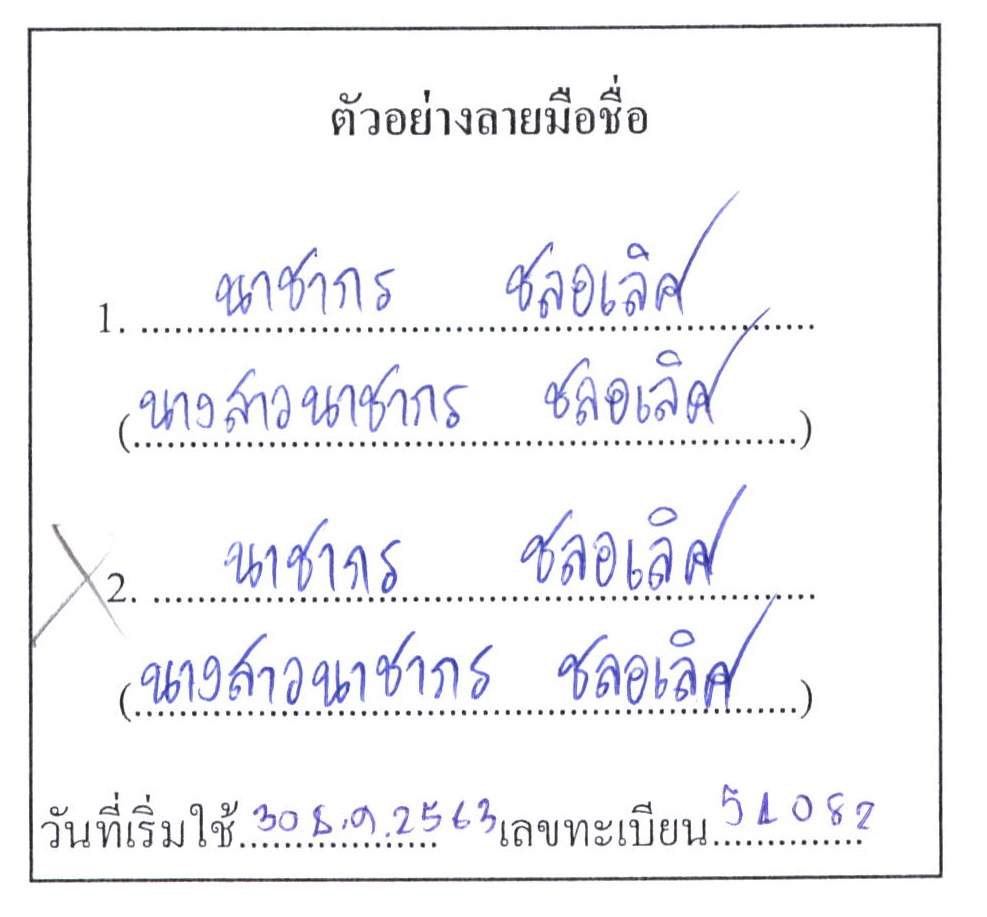 ตัวอย่างลายมือชื่อ
1. นาชากร ชลอเลิศ
(นางสาวนาชากร ชลอเลิศ)
2. นาชากร ชลอเลิศ
(นางสาวนาชากร ชลอเลิศ)
วันที่เริ่มใช้ 30 ธ.ค. 2563 เลขทะเบียน 51082